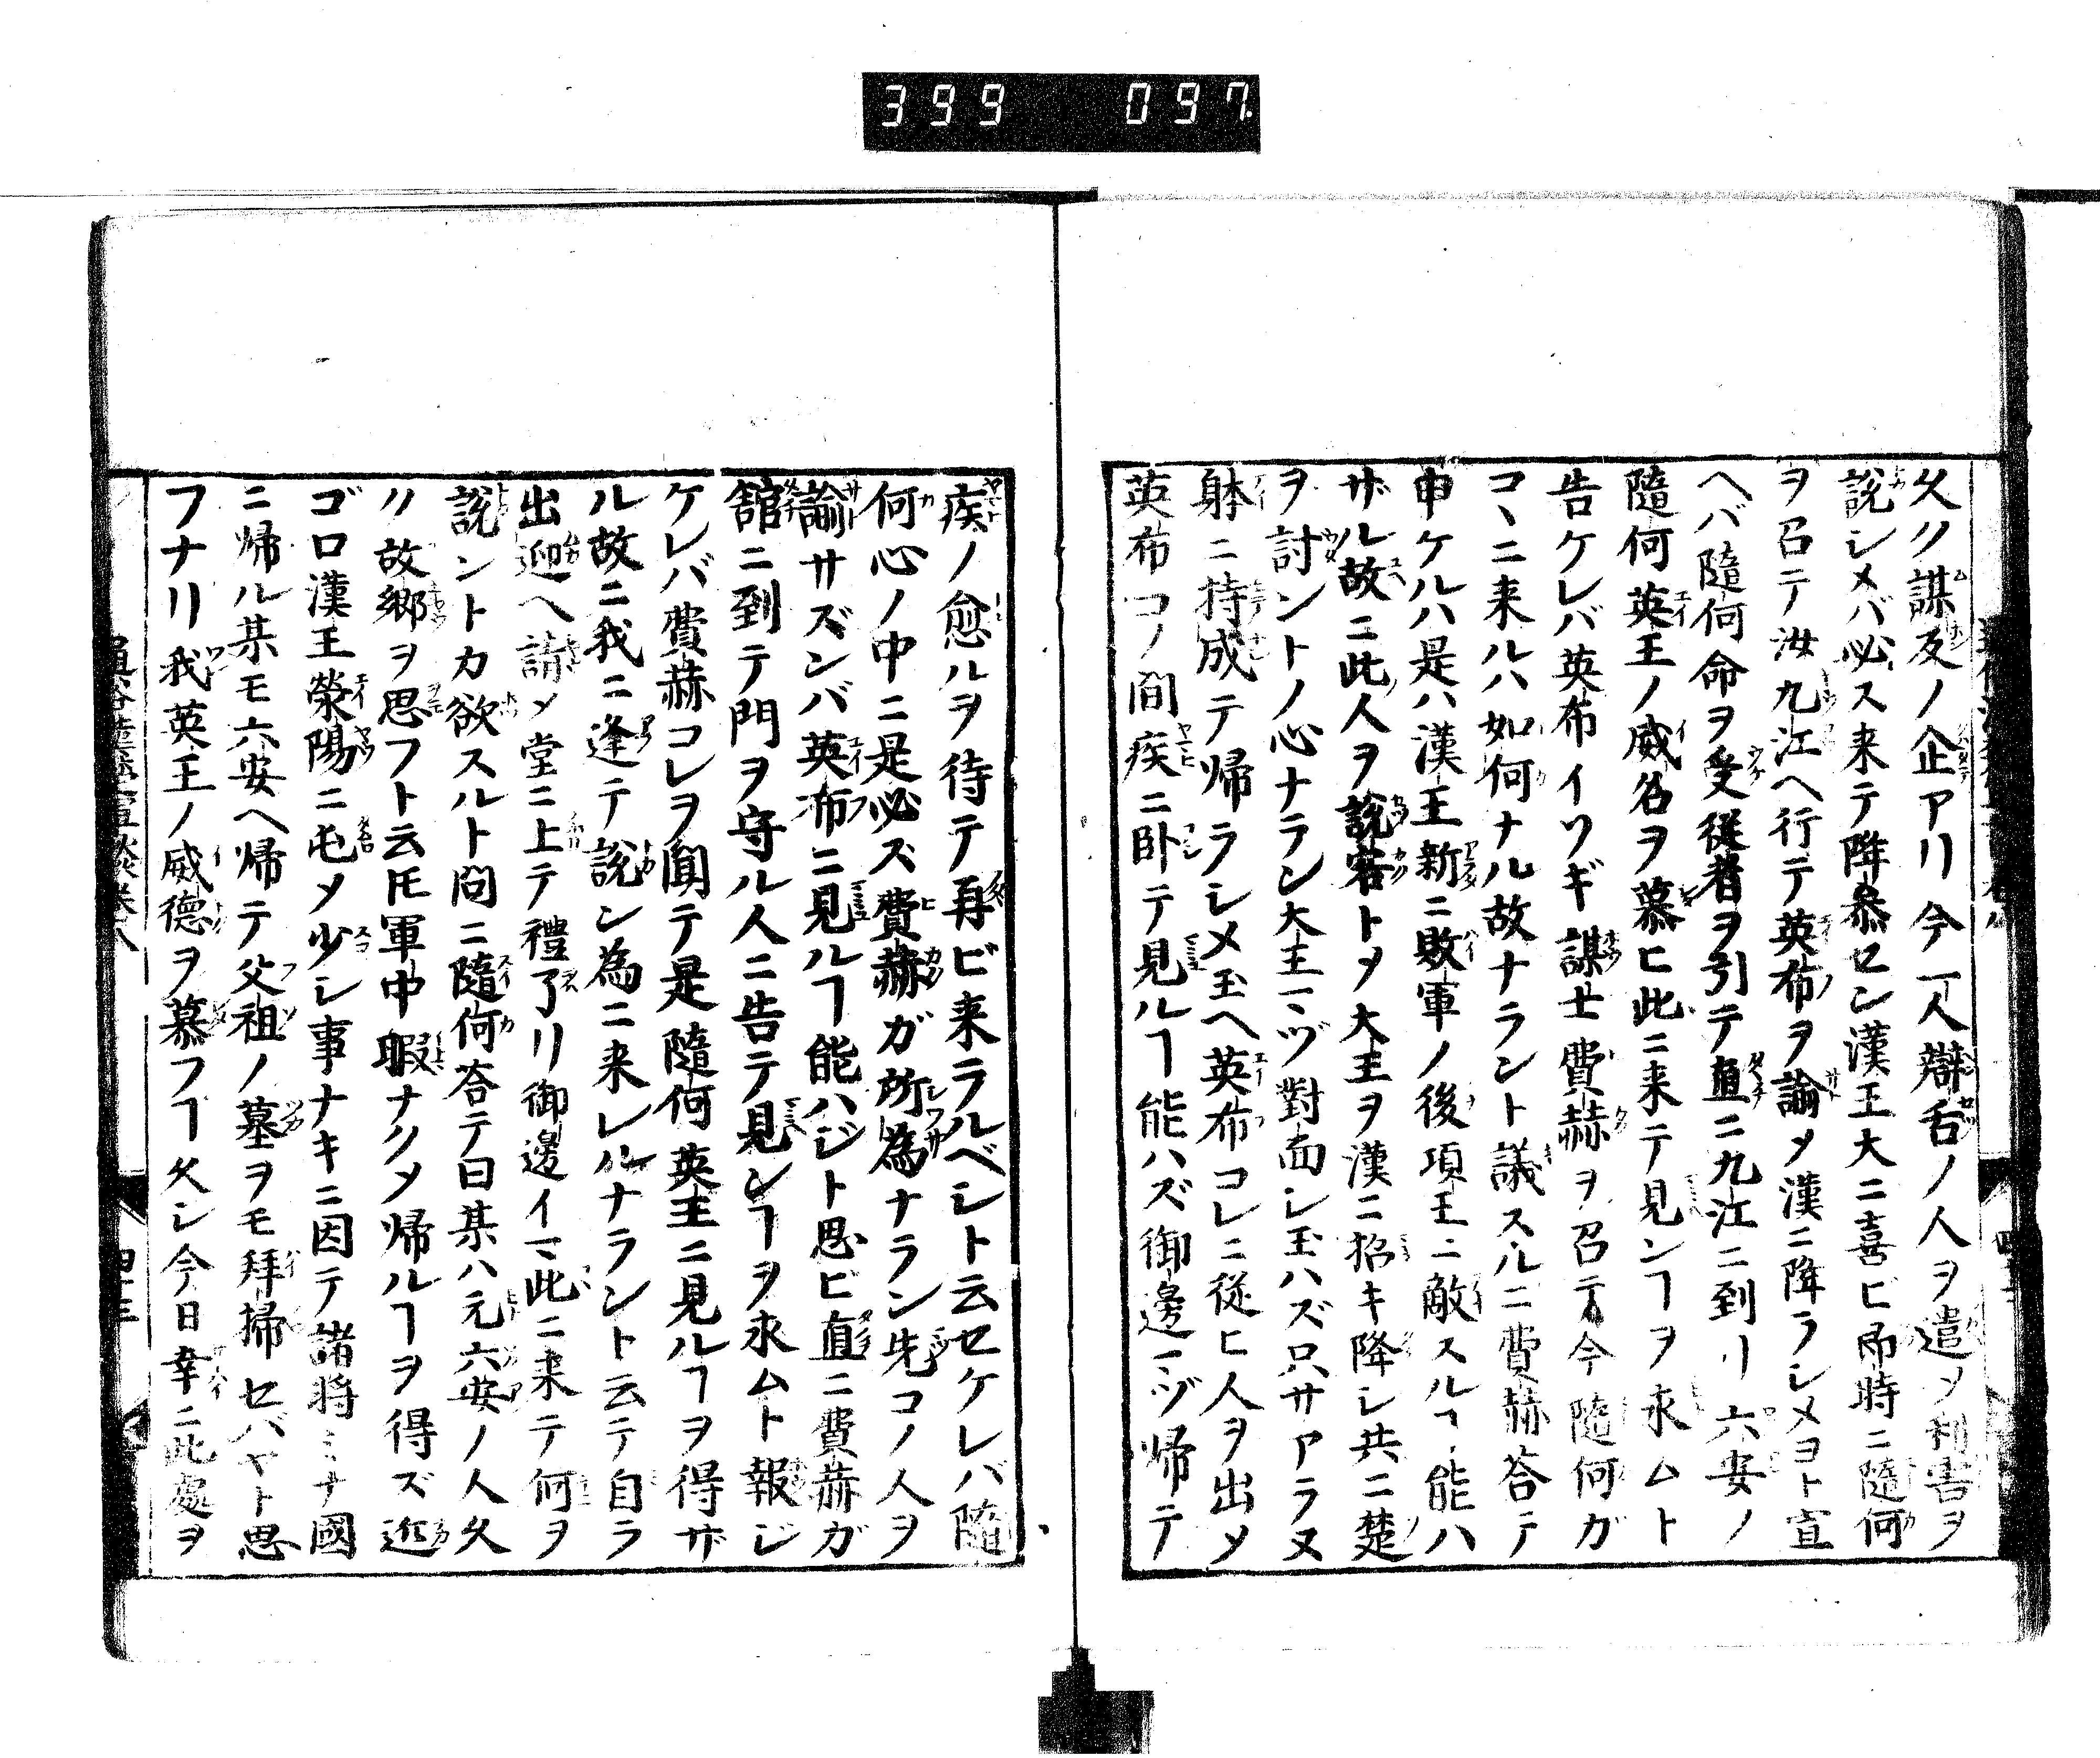 399 097
久ク謀反ノ企アリ今一人辯舌ノ人ヲ遣メ利害ヲ
説シメバ必ス来テ降参セン漢王大ニ喜ビ即時ニ隨何
ヲ召テ汝九江ヘ行テ英布ヲ諭メ漢ニ降ラシメヨト宣
ヘバ隨何命ヲ受従者ヲ引テ直ニ九江ニ到リ六安ノ
隨何英王ノ威名ヲ慕ヒ此ニ来テ見ンヿヲ求ムト
告ケレバ英布イソギ謀士費赫ヲ召テ今隨何ガ
コヽニ来ルハ如何ナル故ナラント議スルニ費赫荅テ
申ケルハ是ハ漢王新ニ敗軍ノ後項王ニ敵スルヿ能ハ
ザル故ニ此人ヲ説客トメ大王ヲ漢ニ招キ降シ共ニ楚
ヲ討ントノ心ナラン大王マヅ對面シ玉ハズ只サアラヌ
躰ニ持成テ帰ラシメ玉ヘ英布コレニ従ヒ人ヲ出メ
英布コノ間疾ニ卧テ見ルヿ能ハズ御邊マヅ帰テ
疾ノ愈ルヲ待テ再ビ来ラルベシト云セケレバ隨
何心ノ中ニ是必ズ費赫ガ所為ナラン先コノ人ヲ
諭サズンバ英布ニ見ルヿ能ハジト思ヒ直ニ費赫ガ
舘ニ到テ門ヲ守ル人ニ告テ見ンヿヲ求ムト報ジ
ケレバ費赫コレヲ聞テ是隨何英王ニ見ルヿヲ得ザ
ル故ニ我ニ逢テ説ン為ニ来レルナラント云テ自ラ
出迎ヘ請メ堂ニ上テ禮了リ御邊イマ此ニ来テ何ヲ
説ントカ欲スルト問ニ隨何荅テ曰某ハ元六安ノ人久
ク故郷ヲ思フト云𪜈軍中暇ナクメ帰ルヿヲ得ズ近
ゴロ漢王榮陽ニ屯メ少シ事ナキニ因テ諸将ミナ國
ニ帰ル某モ六安ヘ帰テ父祖ノ墓ヲモ拜掃セバヤト思
フナリ我英王ノ威德ヲ慕フヿ久シ今日幸ニ此處ヲ